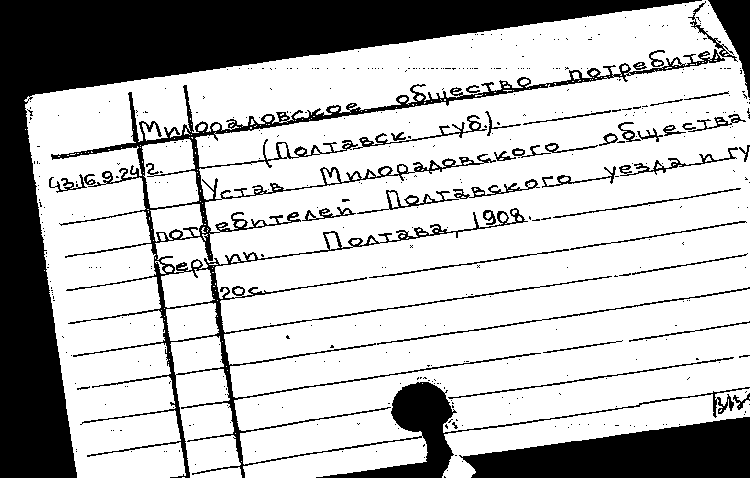 Милорадовское общество потребител
(Полтавск. губ.).
43.16.9.242.
Устав Милорадовского общества
потребителей Полтавского уезда и гу
бернии. Полтава, 1908.
20 с.